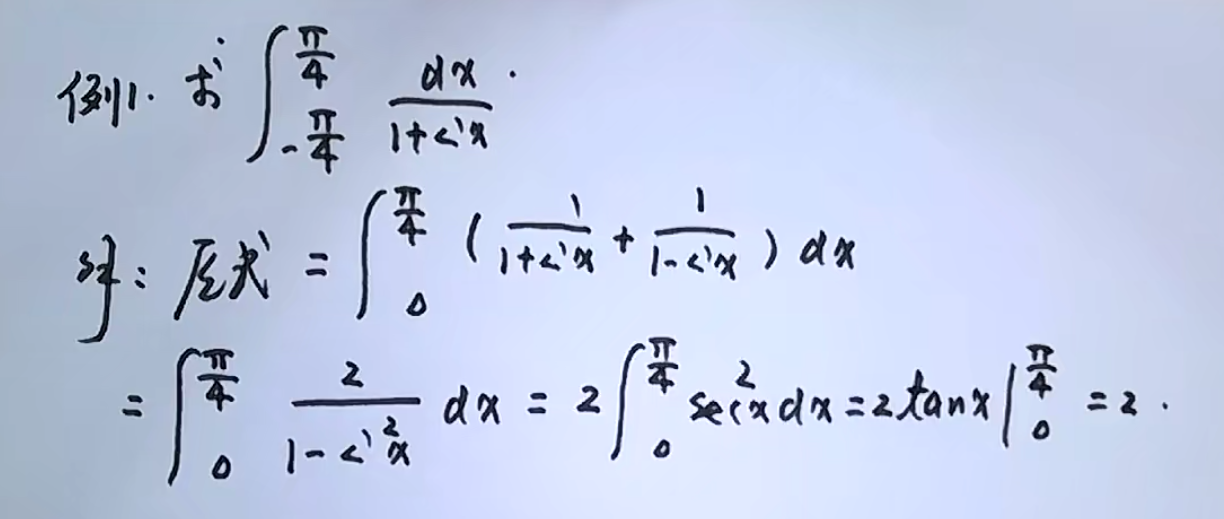 例1. 求 ∫_{-π/4}^{π/4} dx/(1+sin x).
解: 原式 = ∫_0^{π/4} (1/(1+sin x) + 1/(1-sin x)) dx
= ∫_0^{π/4} 2/(1-sin²x) dx = 2∫_0^{π/4} sec²x dx = 2tanx|_0^{π/4} = 2.